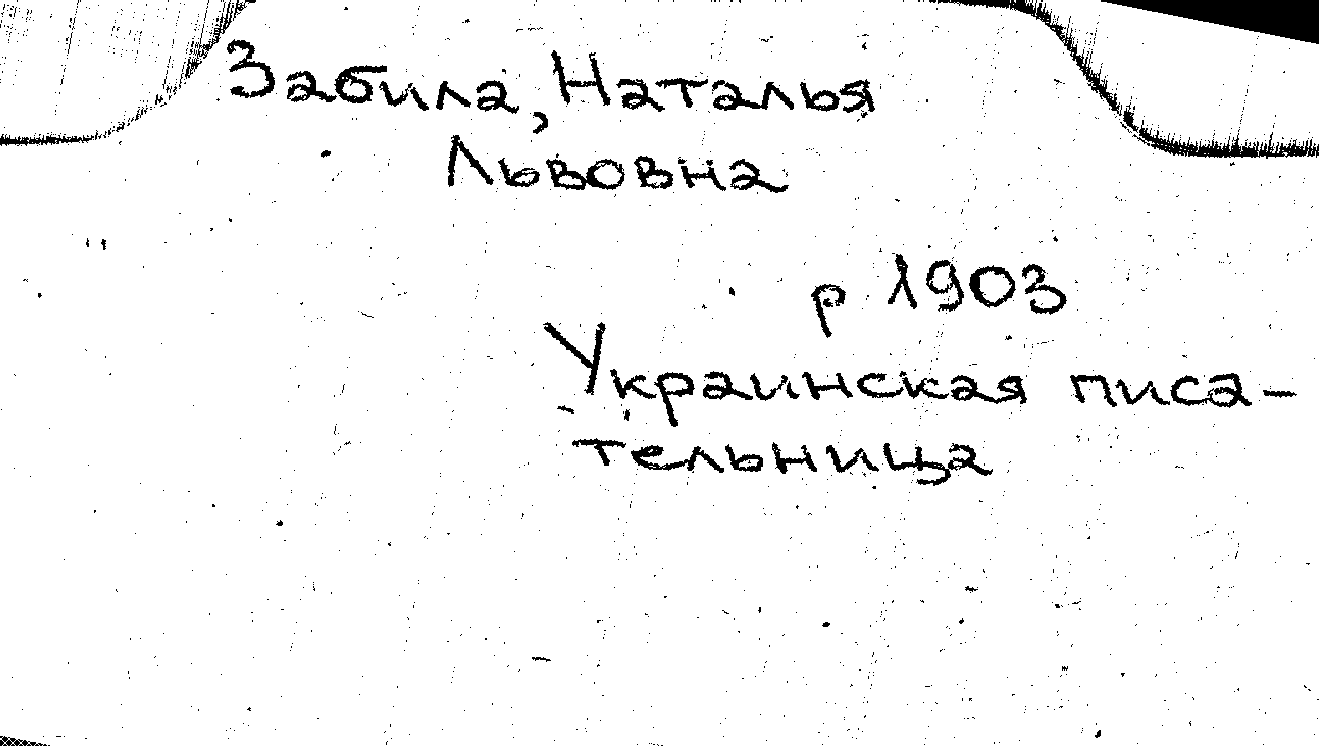 Забила, Наталья
Львовна
р 1903
Украинская писа-
тельница